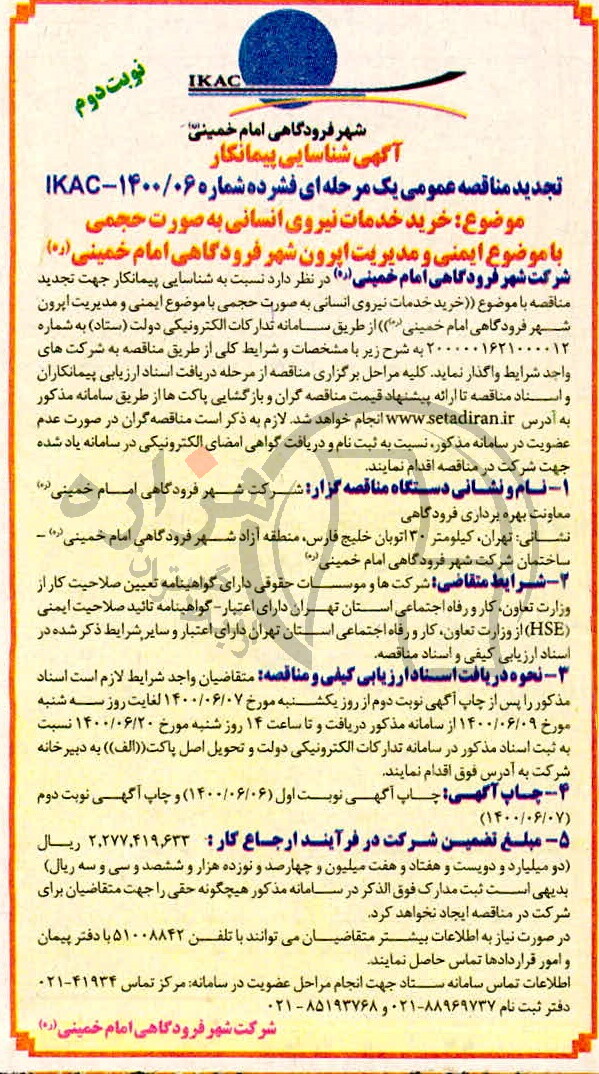 نوبت دوم
IKAC
شهر فرودگاهی امام خمینی(ره)
آگهی شناسایی پیمانکار
تجدید مناقصه عمومی یک مرحله ای فشرده شماره IKAC-۱۴۰۰/۰۶
موضوع: خرید خدمات نیروی انسانی به صورت حجمی
با موضوع ایمنی و مدیریت اپرون شهر فرودگاهی امام خمینی(ره)
شرکت شهر فرودگاهی امام خمینی(ره) در نظر دارد نسبت به شناسایی پیمانکار جهت تجدید
مناقصه با موضوع ((خرید خدمات نیروی انسانی به صورت حجمی با موضوع ایمنی و مدیریت اپرون
شهر فرودگاهی امام خمینی(ره))) از طریق سامانه تدارکات الکترونیکی دولت (ستاد) به شماره
۲۰۰۰۰۰۱۶۲۱۰۰۰۰۱۲ به شرح زیر با مشخصات و شرایط کلی از طریق مناقصه به شرکت های
واجد شرایط واگذار نماید. کلیه مراحل برگزاری مناقصه از مرحله دریافت اسناد ارزیابی پیمانکاران
و اسناد مناقصه تا ارائه پیشنهاد قیمت مناقصه گران و بازگشایی پاکت ها از طریق سامانه مذکور
به آدرس www.setadiran.ir انجام خواهد شد. لازم به ذکر است مناقصه گران در صورت عدم
عضویت در سامانه مذکور، نسبت به ثبت نام و دریافت گواهی امضای الکترونیکی در سامانه یاد شده
جهت شرکت در مناقصه اقدام نمایند.
۱- نام و نشانی دستگاه مناقصه گزار: شرکت شهر فرودگاهی امام خمینی(ره)
معاونت بهره برداری فرودگاهی
نشانی: تهران، کیلومتر ۳۰ اتوبان خلیج فارس، منطقه آزاد شهر فرودگاهی امام خمینی(ره) -
ساختمان شرکت شهر فرودگاهی امام خمینی(ره)
۲- شرایط متقاضی: شرکت ها و موسسات حقوقی دارای گواهینامه تعیین صلاحیت کار از
وزارت تعاون، کار و رفاه اجتماعی استان تهران دارای اعتبار- گواهینامه تائید صلاحیت ایمنی
(HSE) از وزارت تعاون، کار و رفاه اجتماعی استان تهران دارای اعتبار و سایر شرایط ذکر شده در
اسناد ارزیابی کیفی و اسناد مناقصه.
۳- نحوه دریافت اسناد ارزیابی کیفی و مناقصه: متقاضیان واجد شرایط لازم است اسناد
مذکور را پس از چاپ آگهی نوبت دوم از روز یکشنبه مورخ ۱۴۰۰/۰۶/۰۷ لغایت روز سه شنبه
مورخ ۱۴۰۰/۰۶/۰۹ از سامانه مذکور دریافت و تا ساعت ۱۴ روز شنبه مورخ ۱۴۰۰/۰۶/۲۰ نسبت
به ثبت اسناد مذکور در سامانه تدارکات الکترونیکی دولت و تحویل اصل پاکت((الف)) به دبیرخانه
شرکت به آدرس فوق اقدام نمایند.
۴- چاپ آگهی: چاپ آگهی نوبت اول (۱۴۰۰/۰۶/۰۶) و چاپ آگهی نوبت دوم
(۱۴۰۰/۰۶/۰۷)
۵- مبلغ تضمین شرکت در فرآیند ارجاع کار: ۲,۲۷۷,۴۱۹,۶۳۳ ریال
(دو میلیارد و دویست و هفتاد و هفت میلیون و چهارصد و نوزده هزار و ششصد و سی و سه ریال)
بدیهی است ثبت مدارک فوق الذکر در سامانه مذکور هیچگونه حقی را جهت متقاضیان برای
شرکت در مناقصه ایجاد نخواهد کرد.
در صورت نیاز به اطلاعات بیشتر متقاضیان می توانند با تلفن ۵۱۰۰۸۸۴۲ با دفتر پیمان
و امور قراردادها تماس حاصل نمایند.
اطلاعات تماس سامانه ستاد جهت انجام مراحل عضویت در سامانه: مرکز تماس ۴۱۹۳۴-۰۲۱
دفتر ثبت نام ۸۸۹۶۹۷۳۷-۰۲۱ و ۸۵۱۹۳۷۶۸ - ۰۲۱
شرکت شهر فرودگاهی امام خمینی(ره)
هزاره